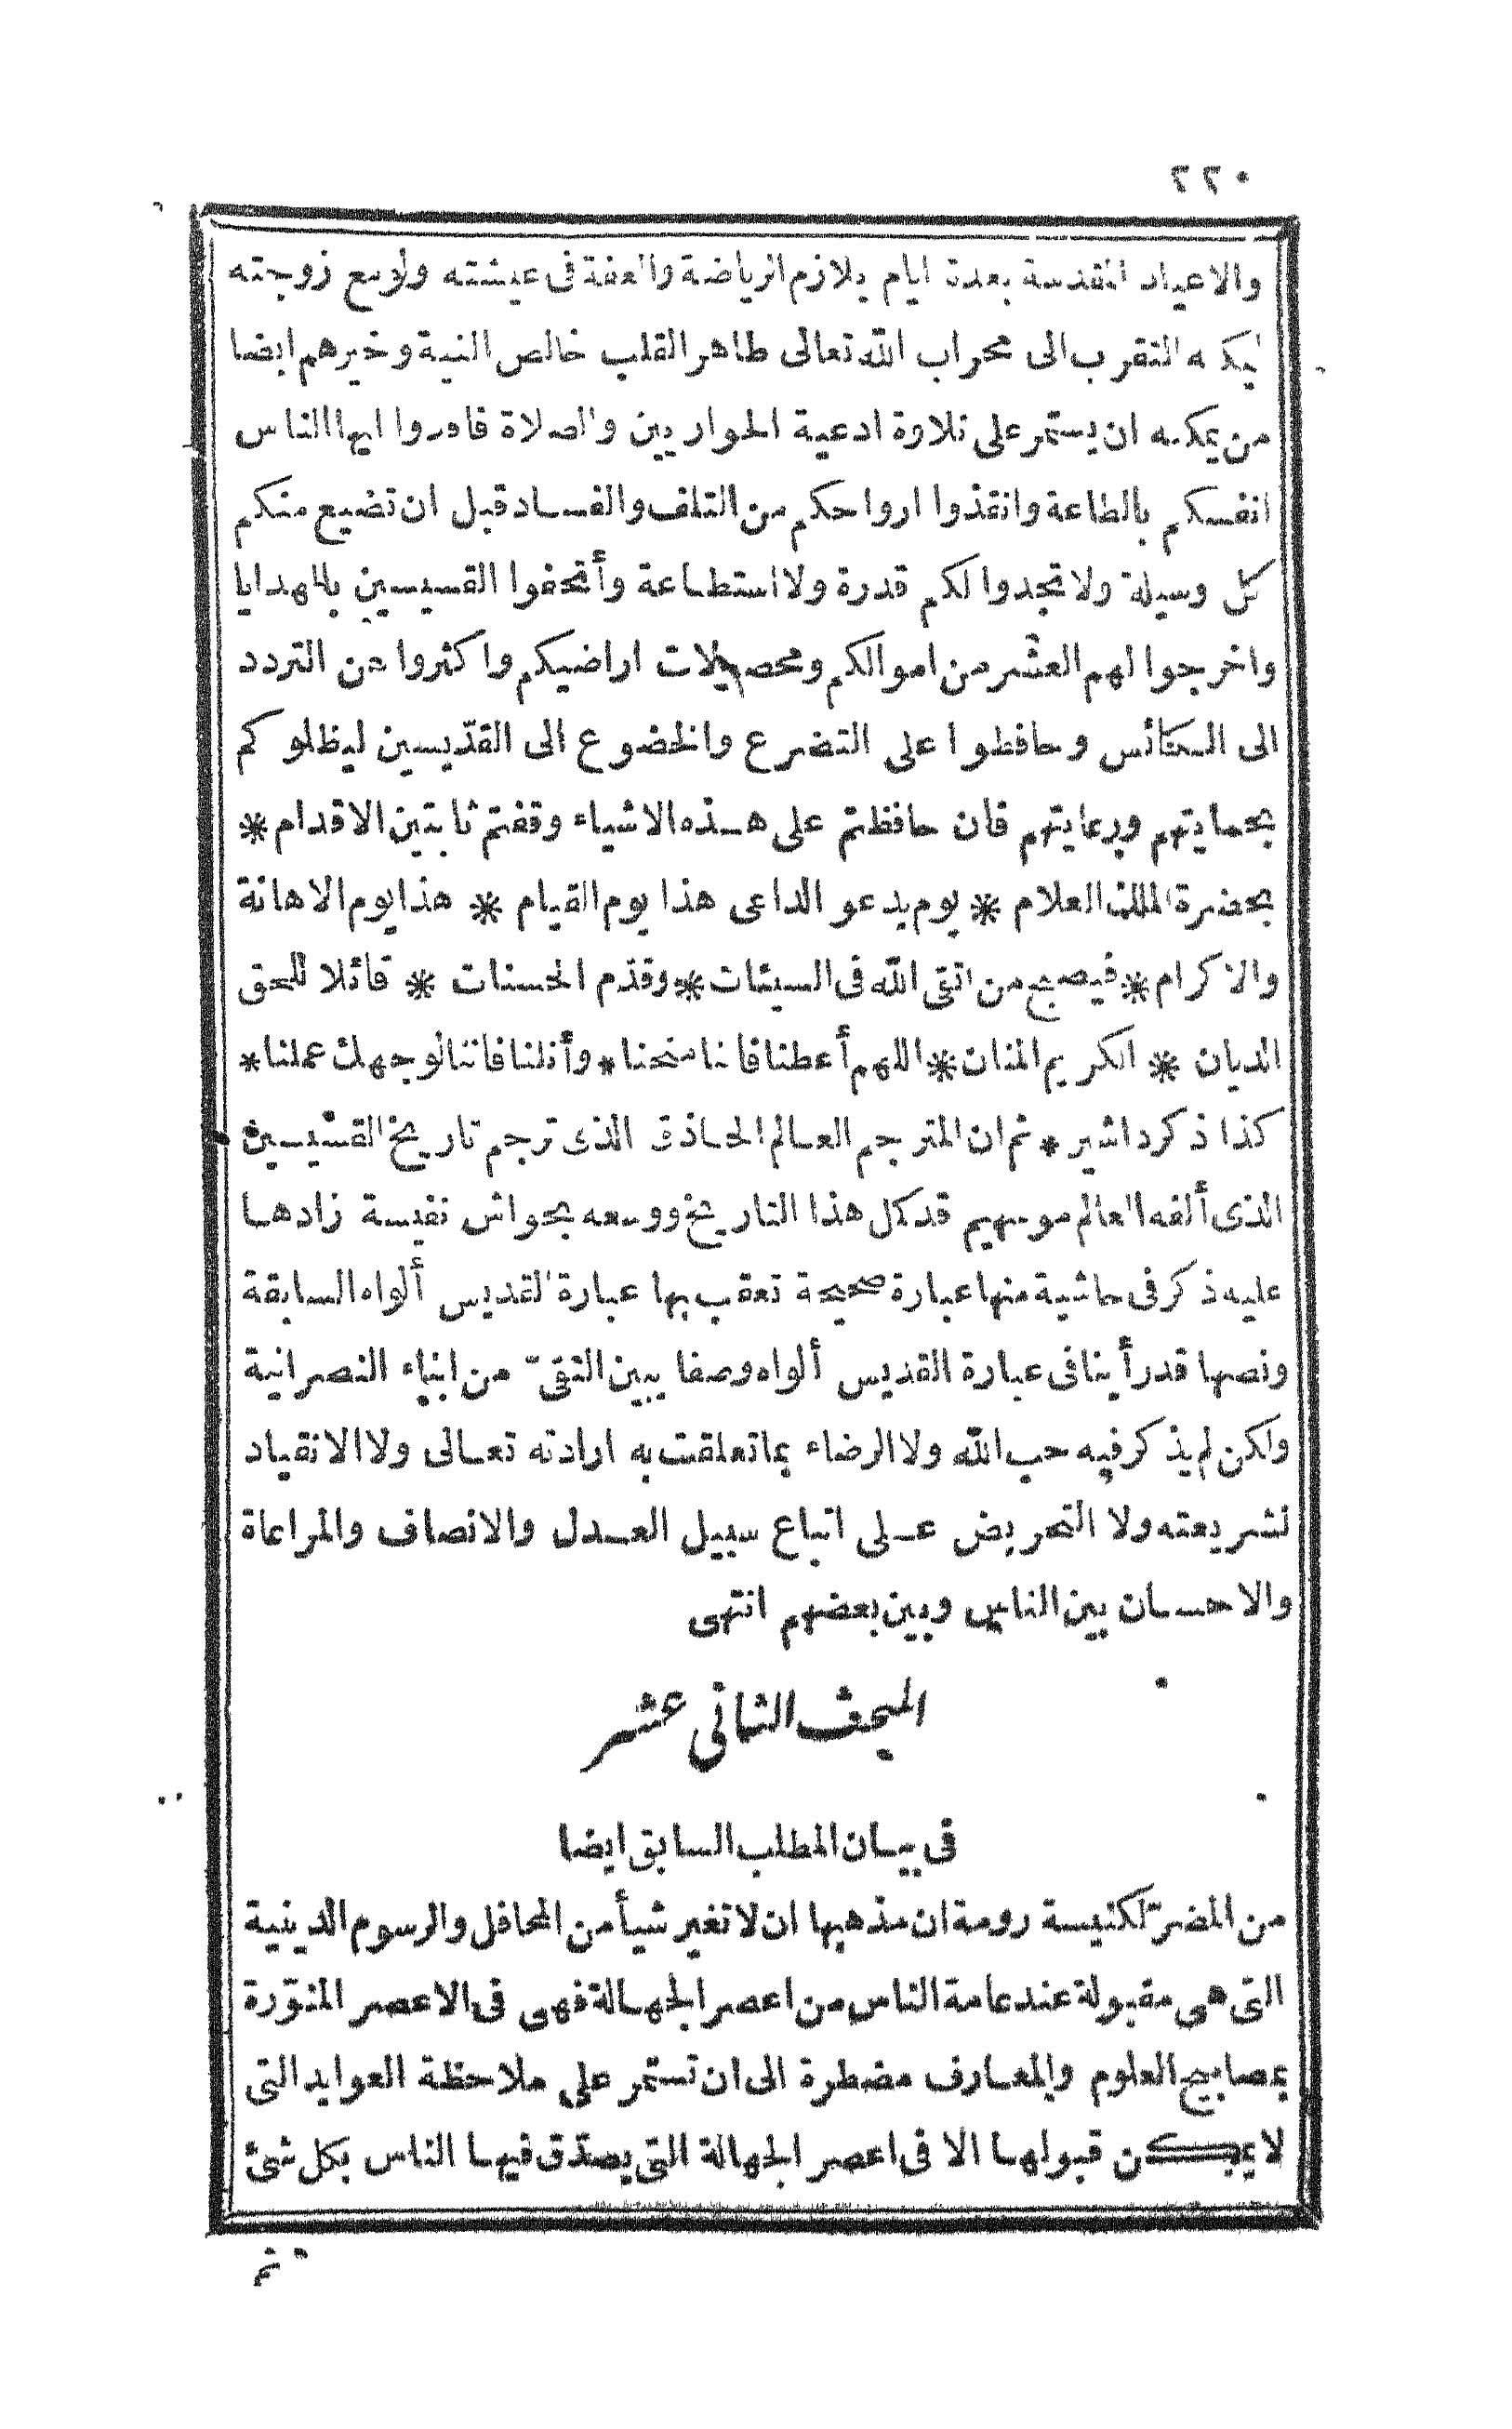 ٢٢٠
والاعياد المقدسة بعدة ايام يلازم الرياضة والعفة فى عيشته ولو مع زوجته
ليمكنه التقرب الى محراب الله تعالى طاهر القلب خالص النية وخيرهم ايضا
من يمكنه ان يستمر على تلاوة ادعية الحواريين والصلاة فادروا ايها الناس
انفسكم بالطاعة وانقذوا ارواحكم من التلف والفساد قبل ان تضيع منكم
كل وسيلة ولا تجدوا لكم قدرة ولا استطاعة وأتحفوا القسيسين بالهدايا
واخرجوا لهم العشر من اموالكم ومحصولات اراضيكم واكثروا من التردد
الى الكنائس وحافظوا على التضرع والخضوع الى القديسين ليظلوكم
بحمايتهم ورعايتهم فان حافظتم على هذه الاشياء وقفتم ثابتين الاقدام *
بحضرة الملك العلام * يوم يدعو الداعى هذا يوم القيام * هذا يوم الاهانة
والاكرام * فيصيح من اتقى الله فى السيئات * وقدّم الحسنات * قائلا للحق
الديان * الكريم المنان * اللهم أعطنا فاننا منحنا * وأنلنا فاننا لوجهك عملنا *
كذا ذكر داشير * ثم ان المترجم العالم الحاذق الذى ترجم تاريخ القسيسين
الذى ألفه العالم موسهيم قد كمل هذا التاريخ ووسعه بحواش نفيسة زادها
عليه ذكر فى حاشية منها عبارة صحيحة تعقب بها عبارة القديس ألواه السابقة
ونصها قد رأينا فى عبارة القديس ألواه وصفا يبين التقىّ من ابناء النصرانية
ولكن لم يذكر فيه حب الله ولا الرضاء بما تعلقت به ارادته تعالى ولا الانقياد
لشريعته ولا التحريض على اتباع سبيل العدل والانصاف والمراعاة
والاحسان بين الناس وبين بعضهم انتهى
المبحث الثانى عشر
فى بيان المطلب السابق ايضا
من المضرّ لكنيسة رومة ان مذهبها ان لا تغير شيأ من المحافل والرسوم الدينية
التى هى مقبولة عند عامة الناس من اعصر الجهالة فهى فى الاعصر المنوّرة
بمصابيح العلوم والمعارف مضطرة الى ان تستمر على ملاحظة العوايد التى
لا يمكن قبولها الا فى اعصر الجهالة التى يصدّق فيها الناس بكل شئ